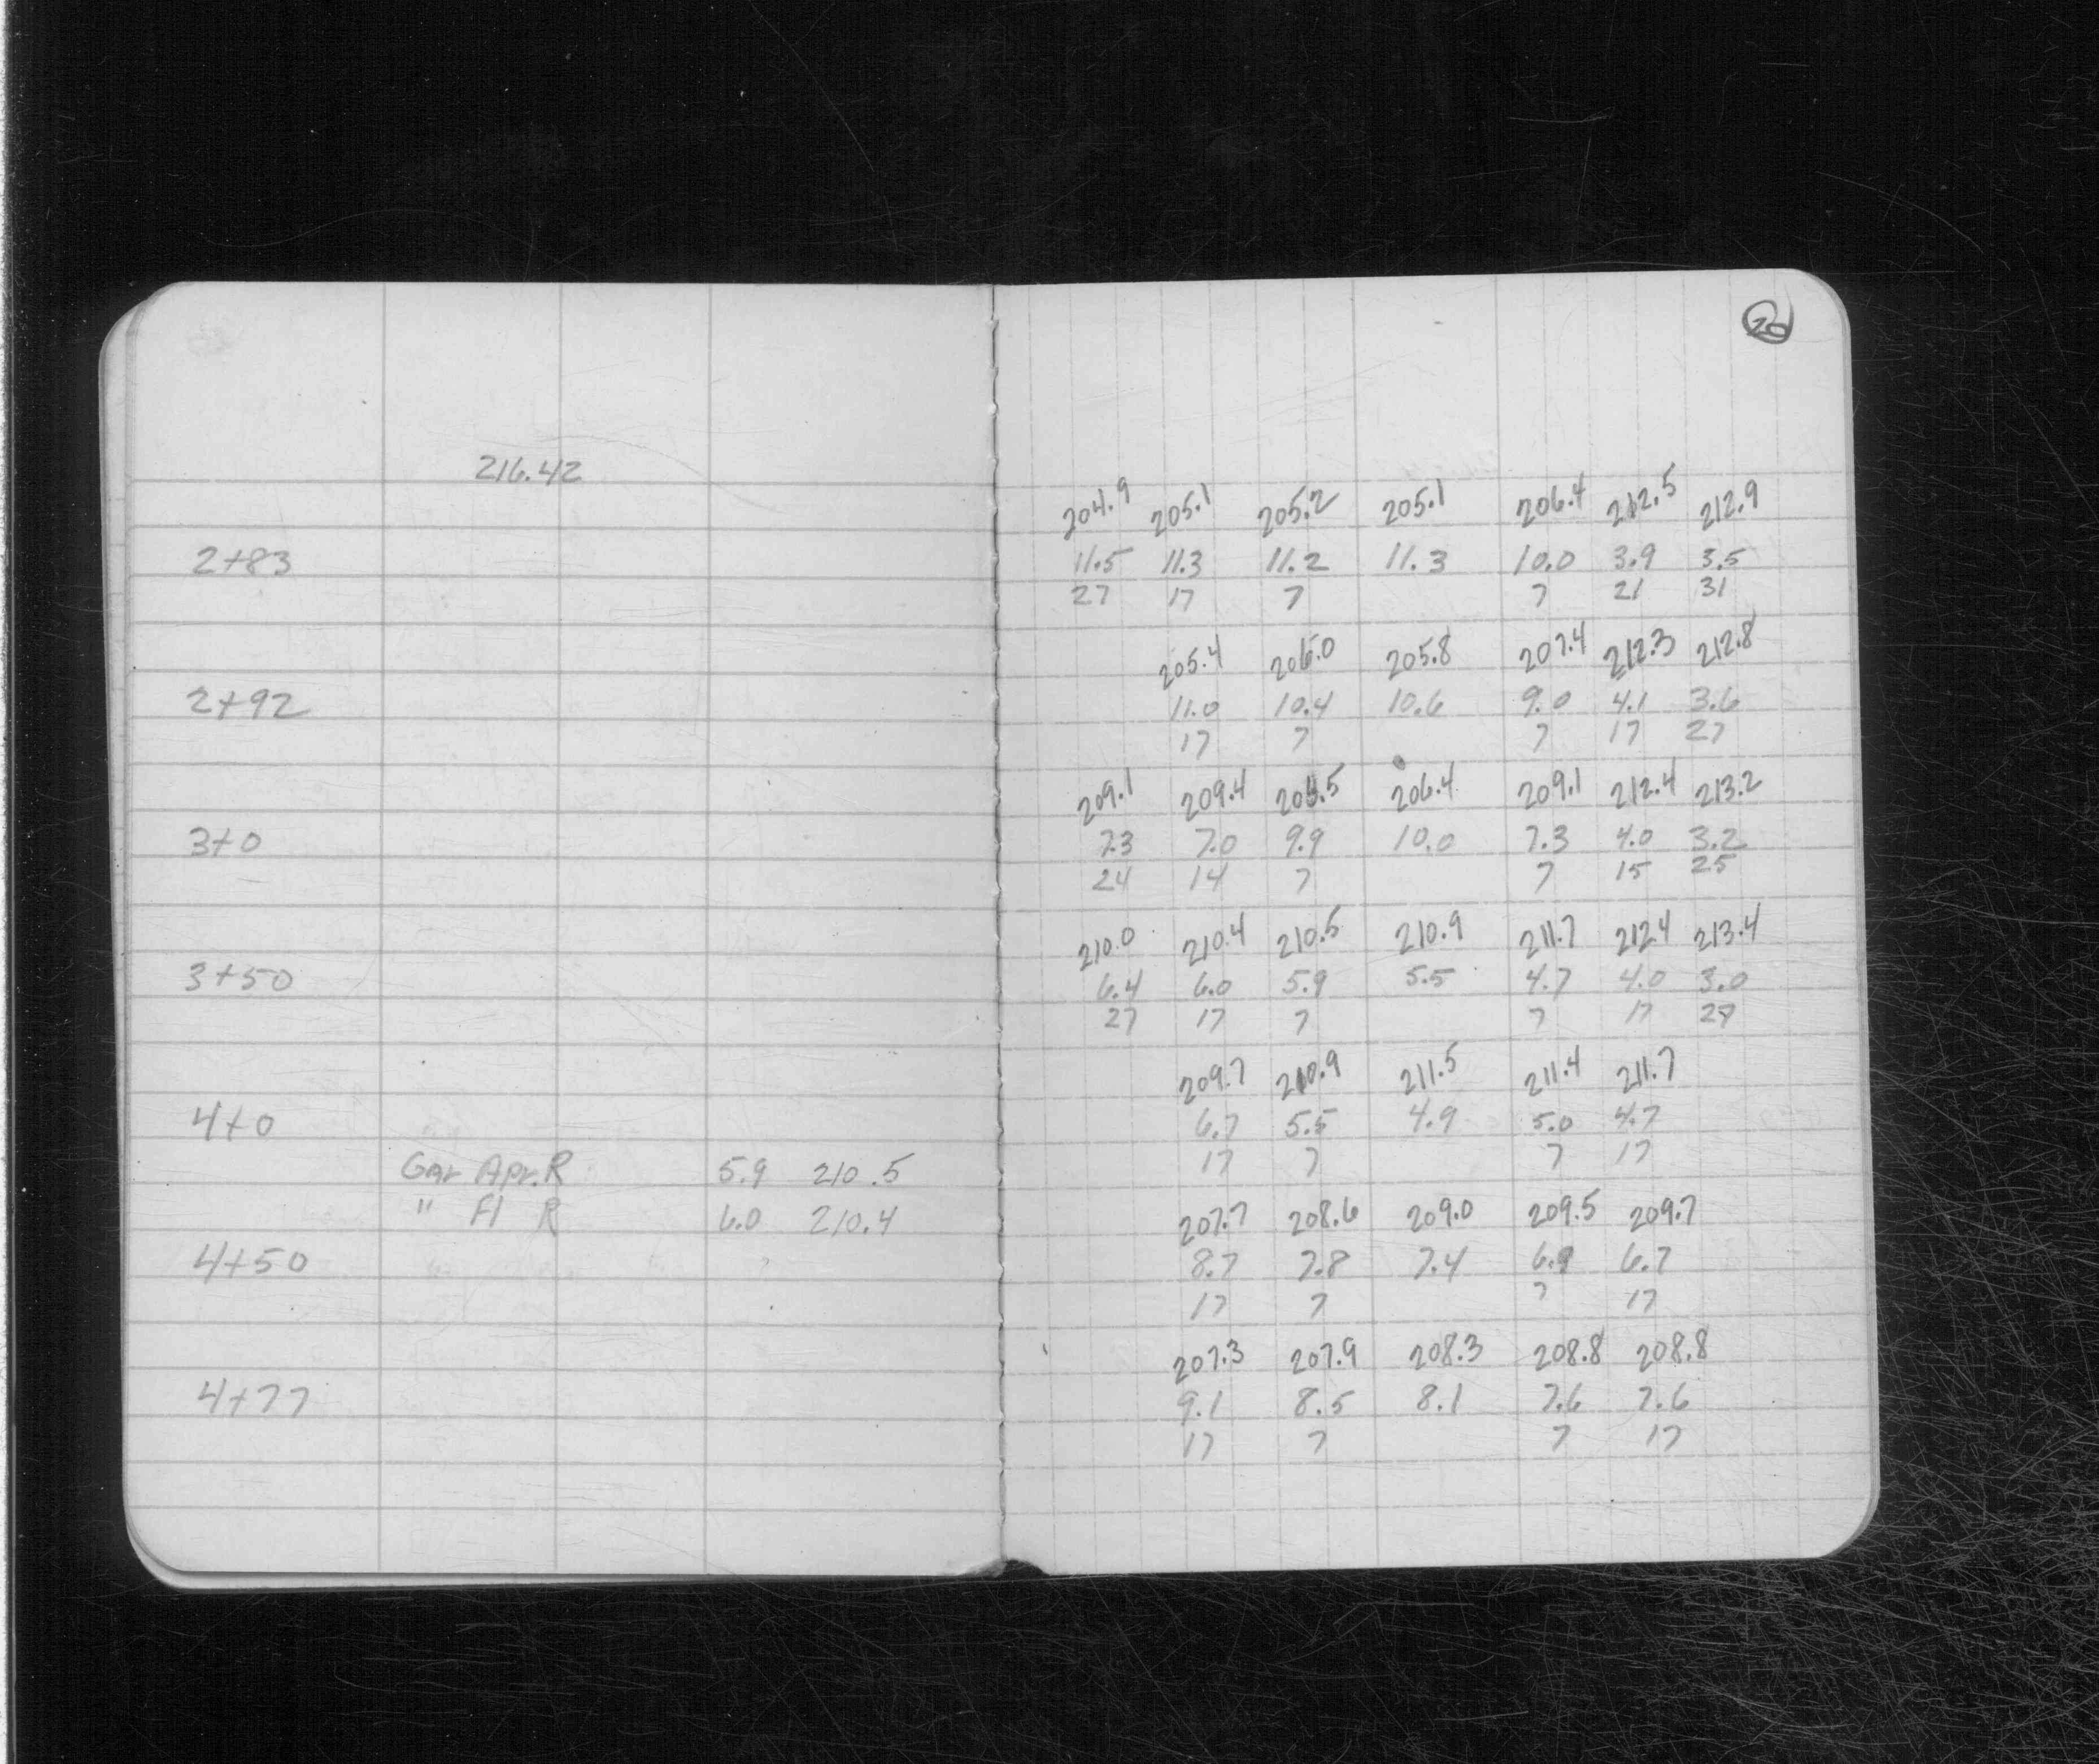 20
216.42
204.9 205.1 205.2 205.1 206.4 212.5 212.9
2+83 11.5 11.3 11.2 11.3 10.0 3.9 3.5
27 17 7 7 21 31
205.4 206.0 205.8 207.4 212.3 212.8
2+92 11.0 10.4 10.6 9.0 4.1 3.6
17 7 7 17 27
209.1 209.4 206.5 206.4 209.1 212.4 213.2
3+0 7.3 7.0 9.9 10.0 7.3 4.0 3.2
24 14 7 7 15 25
210.0 210.4 210.5 210.9 211.7 212.4 213.4
3+50 6.4 6.0 5.9 5.5 4.7 4.0 3.0
27 17 7 7 17 27
209.7 210.9 211.5 211.4 211.7
4+0 6.7 5.5 4.9 5.0 4.7
Gar Apr. R 5.9 210.5 17 7 7 17
" Fl R 6.0 210.4 207.7 208.6 209.0 209.5 209.7
4+50 8.7 7.8 7.4 6.9 6.7
17 7 7 17
207.3 207.9 208.3 208.8 208.8
4+77 9.1 8.5 8.1 7.6 7.6
17 7 7 17